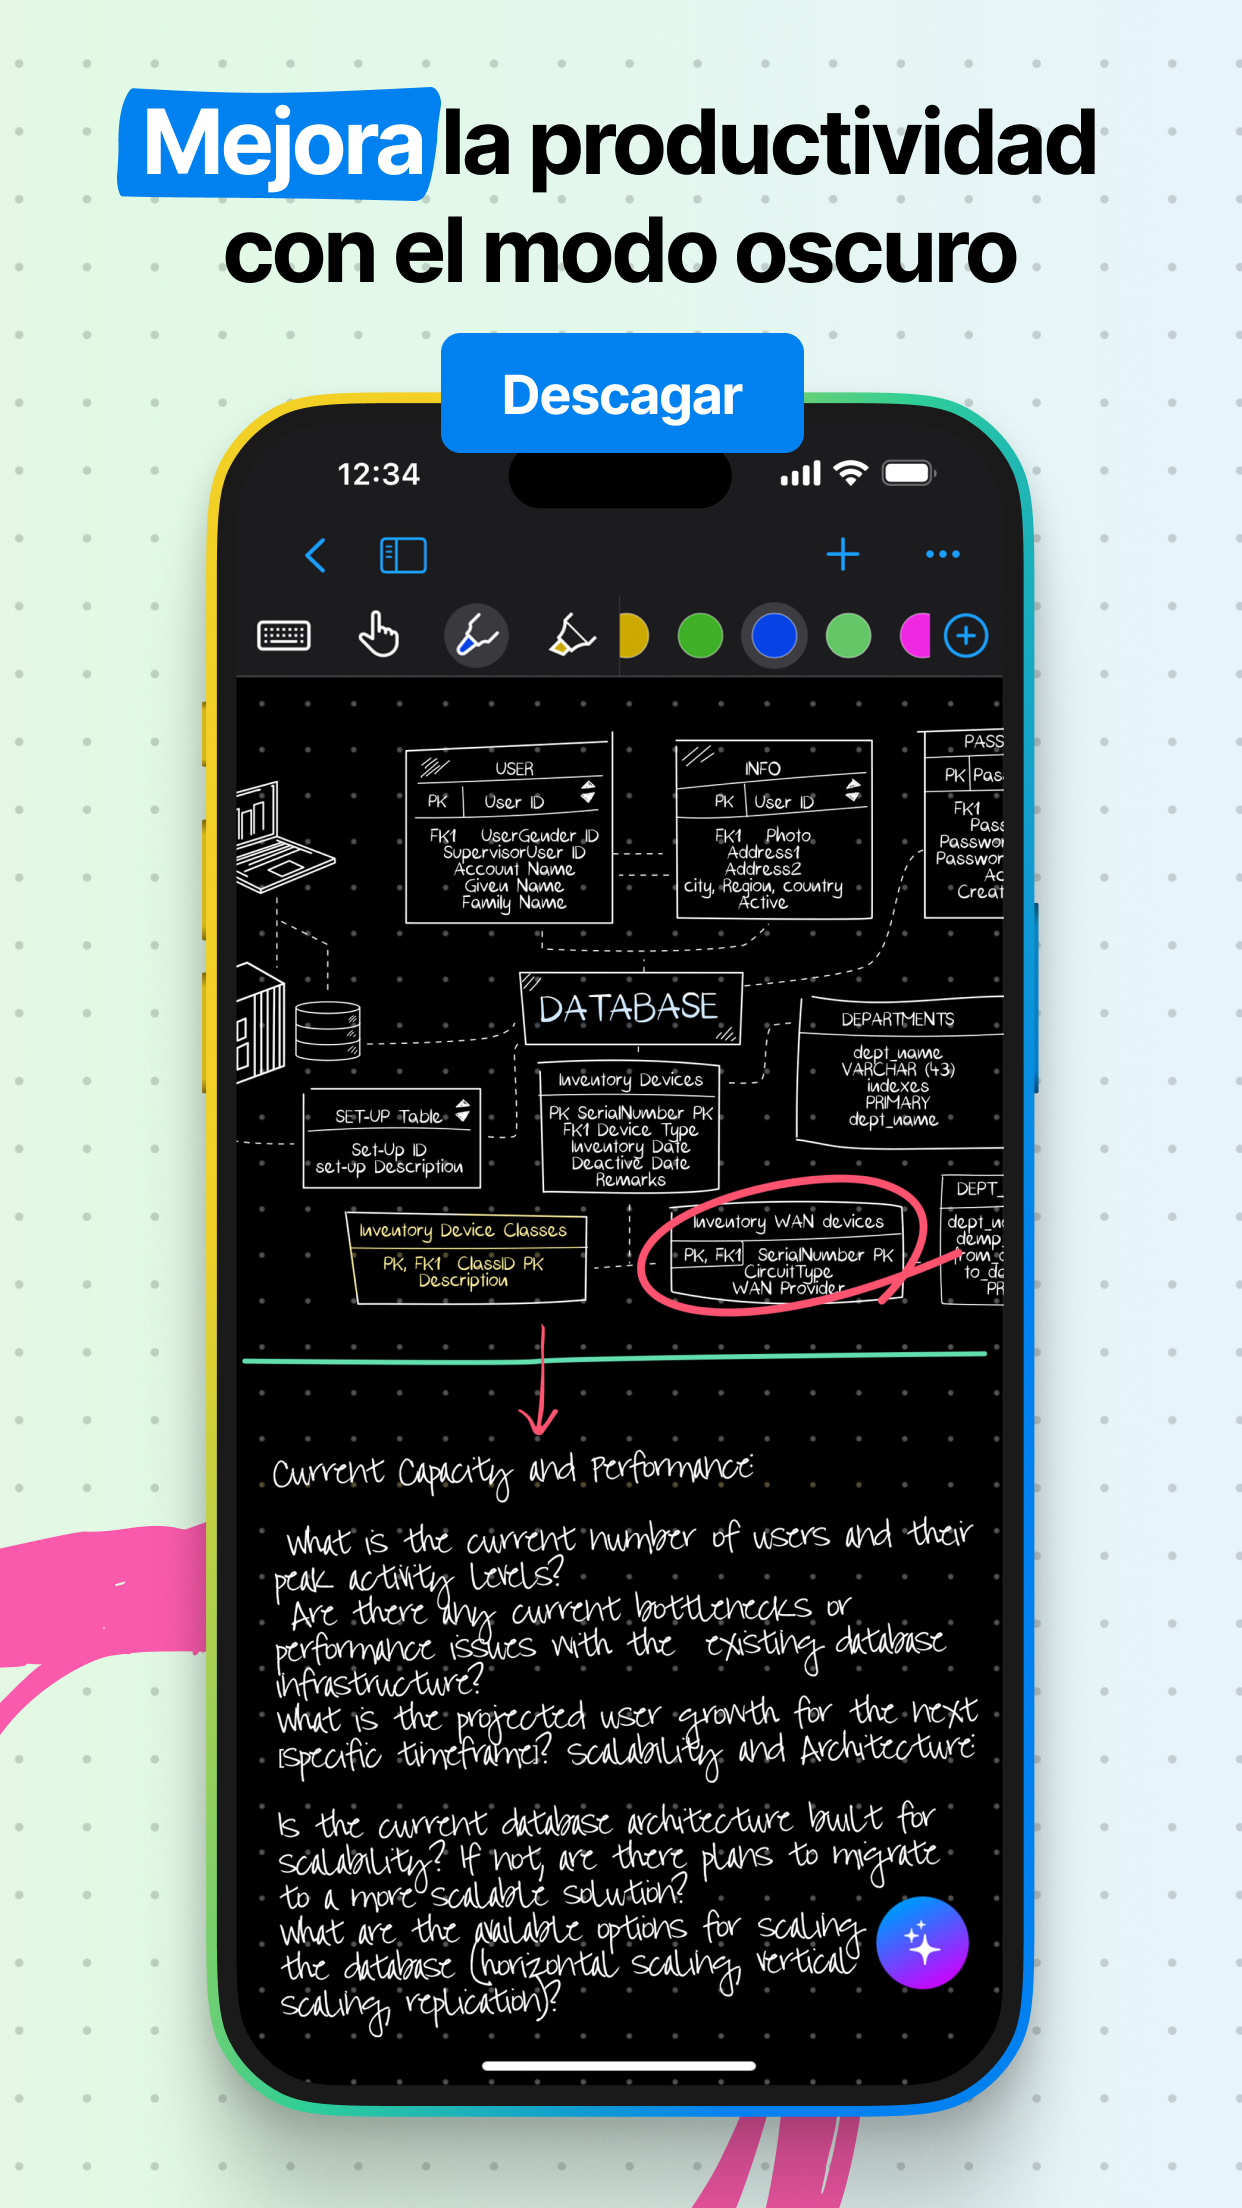 Mejora la productividad
con el modo oscuro
Descagar
12:34
USER
PK User ID
FK1 UserGender ID
SupervisorUser ID
Account Name
Given Name
Family Name
INFO
PK User ID
FK1 Photo
Address1
Address2
city, Region, country
Active
PASS
PK Pas
FK1
Pass
Passwor
Password
Ac
Creat
DATABASE
DEPARTMENTS
dept_name
VARCHAR (43)
indexes
PRIMARY
dept_name
Inventory Devices
PK SerialNumber PK
FK1 Device Type
Inventory Date
Deactive Date
Remarks
SET-UP Table
Set-Up ID
set-up Description
Inventory Device Classes
PK, FK1 ClassID PK
Description
Inventory WAN devices
PK, FK1 SerialNumber PK
CircuitType
WAN Provider
DEPT_
dept_n
demp_
from_d
to_da
PR
Current Capacity and Performance:
What is the current number of users and their
peak activity levels?
Are there any current bottlenecks or
performance issues with the existing database
infrastructure?
What is the projected user growth for the next
[specific timeframe]? Scalability and Architecture:
Is the current database architecture built for
scalability? If not, are there plans to migrate
to a more scalable solution?
What are the available options for scaling
the database (horizontal scaling, vertical
scaling, replication)?